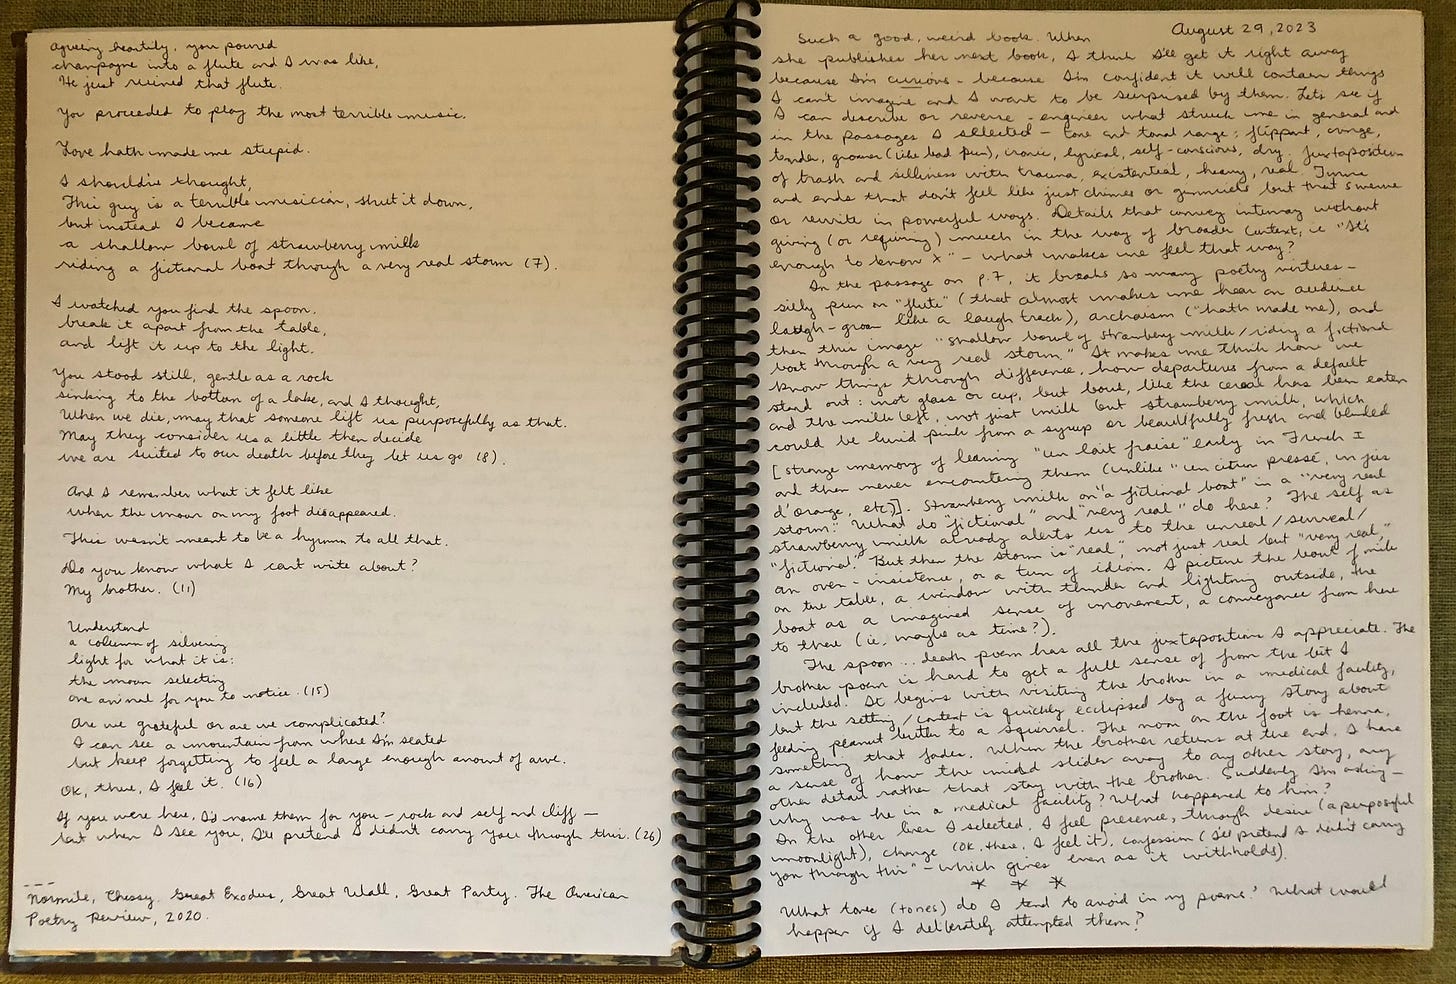 agreeing heartily. you poured
champagne into a flute and I was like,
He just ruined that flute.
You proceeded to play the most terrible music.
Love hath made me stupid.
I should've thought,
This guy is a terrible musician, shut it down,
but instead I became
a shallow bowl of strawberry milk
riding a fictional boat through a very real storm (7).
I watched you find the spoon.
break it apart from the table,
and lift it up to the light.
You stood still, gentle as a rock
sinking to the bottom of a lake, and I thought,
When we die, may that someone lift us purposefully as that.
May they consider us a little then decide
we are suited to our death before they let us go (8).
And I remember what it felt like
when the moon on my foot disappeared.
This wasn't meant to be a hymn to all that.
Do you know what I can't write about?
My brother. (11)
Understand
a column of silvering
light for what it is:
the moon selecting
one animal for you to notice. (15)
Are we grateful or are we complicated?
I can see a mountain from where I'm seated
but keep forgetting to feel a large enough amount of awe.
OK, there, I feel it. (16)
If you were here, I'd name them for you – rock and self and cliff –
but when I see you, I'll pretend I didn't carry you through this. (26)
---
Normile, Chessy. Great Exodus, Great Wall, Great Party. The American
Poetry Review, 2020.
August 29, 2023
Such a good, weird book. When
she publishes her next book, I think I'll get it right away
because I'm curious – because I'm confident it will contain things
I can't imagine and I want to be surprised by them. Lets see if
I can describe or reverse-engineer what struck me in general and
in the passages I selected – tone and tonal range: flippant, cringe,
tender, groaner (like bad pun), ironic, lyrical, self-conscious, dry. Juxtaposition
of trash and silliness with trauma, existential, heavy, real. Turns
and ends that don't feel like just chimes or gimmicks but that swerve
or rewrite in powerful ways. Details that convey intimacy without
giving (or requiring) much in the way of broader context, ie "It's
enough to know x" – what makes me feel that way?
In the passage on p.7, it breaks so many poetry virtues –
silly pun on "flute" (that almost makes me hear an audience
laugh-groan like a laugh track), archaism ("hath made me), and
then this image "shallow bowl of strawberry milk/riding a fictional
boat through a very real storm." It makes me think how we
know things through difference, how departures from a default
stand out: not glass or cup, but bowl, like the cereal has been eaten
and the milk left, not just milk but strawberry milk, which
could be lurid pink from a syrup or beautifully fresh and blended
[strange memory of learning "un lait fraise" early in French I
and then never encountering them (unlike "un citron pressé, un jus
d'orange, etc)]. Strawberry milk on "a fictional boat" in a "very real
storm." What do "fictional" and "very real" do here? The self as
strawberry milk already alerts us to the unreal/surreal/
"fictional." But then the storm is "real", not just real but "very real,"
an over-insistence, or a turn of idiom. I picture the bowl of milk
on the table, a window with thunder and lightning outside, the
boat as a imagined sense of movement, a conveyance from here
to there (ie. maybe as time?).
The spoon... death poem has all the juxtapositions I appreciate. The
brother poem is hard to get a full sense of from the bit I
included. It begins with visiting the brother in a medical facility,
but the setting/context is quickly eclipsed by a funny story about
feeding peanut butter to a squirrel. The moon on the foot is henna,
something that fades. When the brother returns at the end, I have
a sense of how the mind slides away to any other story, any
other detail rather that stay with the brother. Suddenly I'm asking –
why was he in a medical facility? What happened to him?
In the other lines I selected, I feel presence, through desire (a purposeful
moonlight), change (OK, there, I feel it), confession (I'll pretend I didn't carry
you through this" – which gives even as it withholds).
* * *
What tone (tones) do I tend to avoid in my poems? What would
happen if I deliberately attempted them?